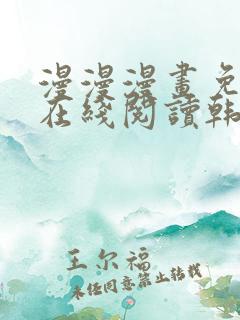 漫漫漫畫免
在綫閱讀韩
王尔福
未经同意禁止转载